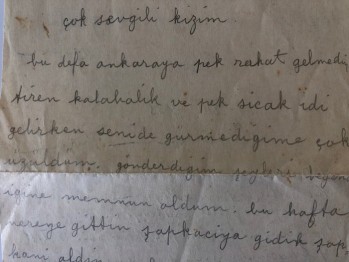 çok sevgili kizim
bu defa ankaraya pek rahat gelmedi
tiren kalabalik ve pek sicak idi
gelirken senide gürmediğime çok
üzüldüm. gönderdiğim şeyleri
iğine memnun oldum. bu hafta
nereye gittin şapkaciya gidik şap-
kani aldin